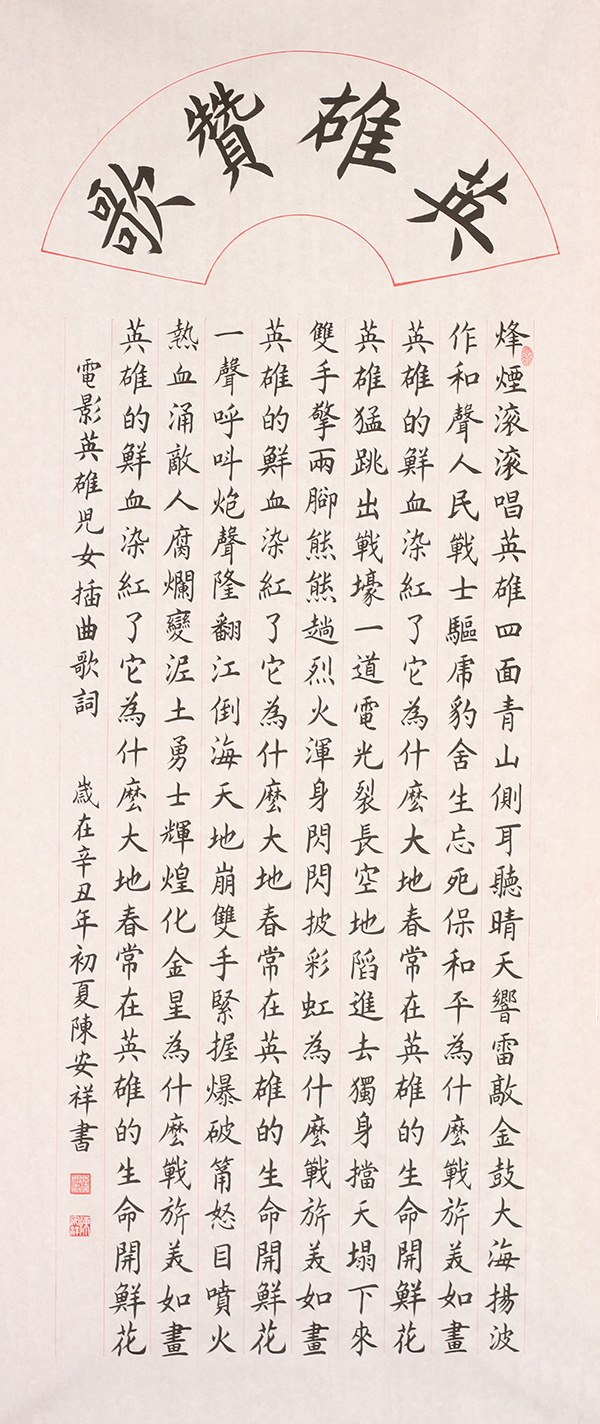 英雄贊歌
烽煙滚滚唱英雄四面青山側耳聽晴天響雷敲金鼓大海揚波
作和聲人民戰士驅虎豹舍生忘死保和平為什麽戰旂美如畫
英雄的鮮血染紅了它為什麽大地春常在英雄的生命開鮮花
英雄猛跳出戰壕一道電光裂長空地陷進去獨身擋天塌下來
雙手擎兩腳熊熊趟烈火渾身閃閃披彩虹為什麽戰旂美如畫
英雄的鮮血染紅了它為什麽大地春常在英雄的生命開鮮花
一聲呼叫炮聲隆翻江倒海天地崩雙手緊握爆破筩怒目噴火
熱血涌敵人腐爛變泥土勇士輝煌化金星為什麽戰旂美如畫
英雄的鮮血染紅了它為什麽大地春常在英雄的生命開鮮花
電影英雄兒女插曲歌詞 歲在辛丑年初夏陳安祥書